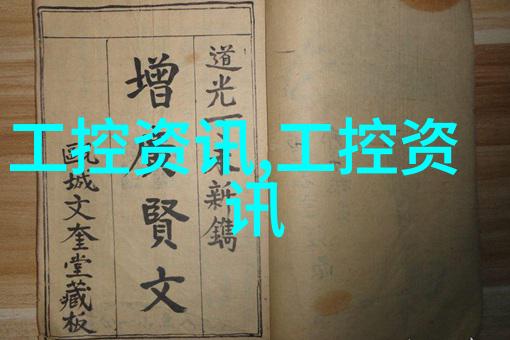 工控资讯,工控资
讯
道光新鐫
增廣賢文
甌城文奎堂藏板